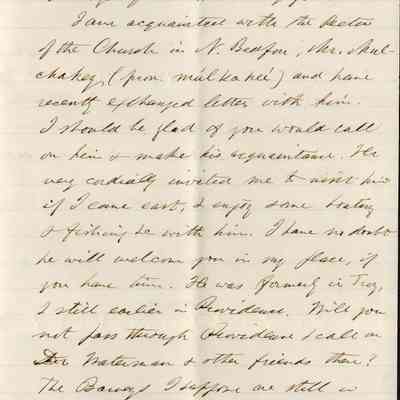 I am acquainted with the Rector
of the Church in N. Bedford, Mr. Mul-
chahey, (pron. múl ka heé) and have
recently exchanged letters with him.
I should be glad if you would call
on him & make his acquaintance. He
very cordially invited me to visit him
if I came east, & enjoy some boating
& fishing &c with him. I have no doubt
he will welcome you in my place, if
you have time. He was formerly in Troy,
& still earlier in Providence. Will you
not pass through Providence & call on
Waterman & other friends there?
The I suppose are still in